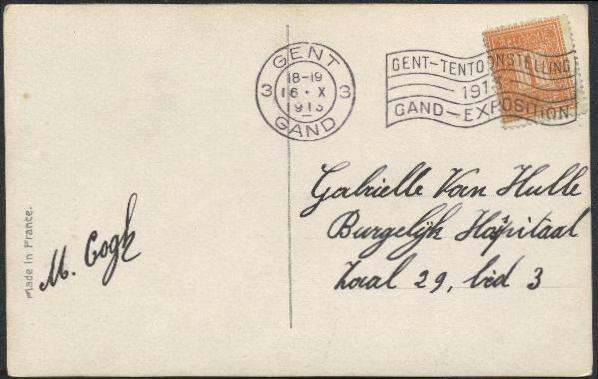 GENT
18-19
16 · X
1913
GAND
3
3
GENT-TENTOONSTELLING
191
GAND-EXPOSITION
Gabrielle Van Hulle
Burgelijk Hospitaal
Zaal 29, bed 3
M. Cogh
Made in France.